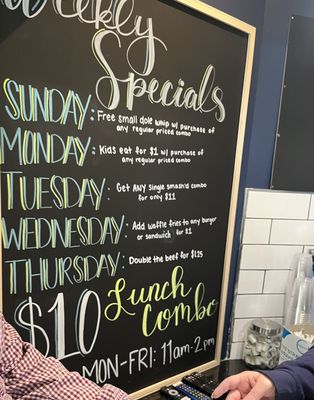 Weekly
Specials
SUNDAY: Free small dole whip w/ purchase of
any regular priced combo
MONDAY: Kids eat for $1 w/ purchase
of any regular priced combo
TUESDAY: Get ANY single smash'd combo
for only $11
WEDNESDAY: Add waffle fries to any burger
or sandwich for $1
THURSDAY: Double the beef for $1.25
$10 Lunch
Combo
MON-FRI: 11am-2pm